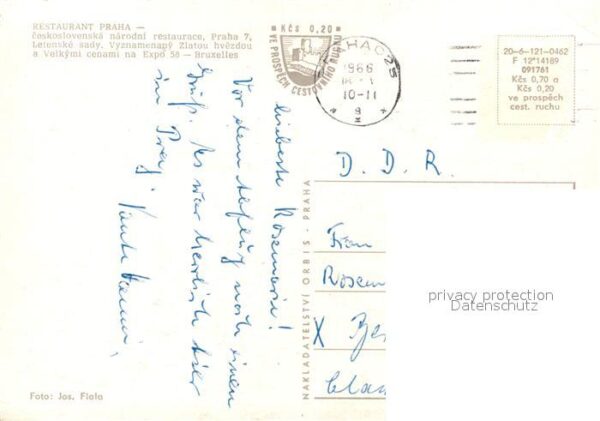 RESTAURANT PRAHA —
československá národní restaurace, Praha 7,
Letenské sady. Vyznamenaný Zlatou hvězdou
a Velkými cenami na Expo 58 — Bruxelles
Kčs 0,20
VE PROSPĚCH CESTOVNÍHO RUCHU
PRAHA 25
10-11
20-6-121-0462
F 12*14189
091761
Kčs 0,70 a
Kčs 0,20
ve prospěch
cest. ruchu
Liebste Rosemarie!
Vor dem Abflug noch einen
Gruß. Es war herrlich hier
in Prag.
Tante
D. D. R.
Frau
Rosem
X Ber
NAKLADATELSTVÍ ORBIS - PRAHA
privacy protection
Datenschutz
Foto: Jos. Fiala